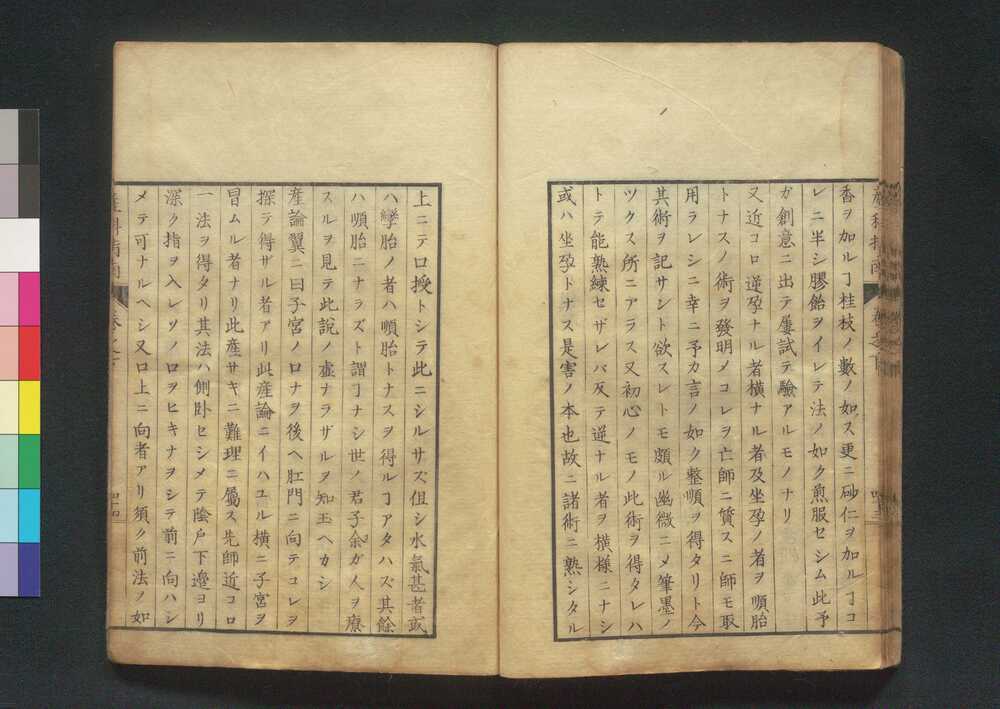 香ヲ加ルヿ桂枝ノ數ノ如ス更ニ砂仁ヲ加ルヿコ
レニ半シ膠飴ヲイレテ法ノ如ク煎服セシム此予
ガ創意ニ出テ屢試テ驗アルモノナリ
又近コロ逆孕ナル者横ナル者及坐孕ノ者ヲ順胎
トナスノ術ヲ發明メコレヲ亡師ニ質スニ師モ取
用ラレシニ幸ニ予カ言ノ如ク整順ヲ得タリト今
其術ヲ記サント欲スレトモ頗ル幽微ニメ筆墨ノ
ツクス所ニアラス又初心ノモノ此術ヲ得タレハ
トテ能熟練セザレバ反テ逆ナル者ヲ横様ニナシ
或ハ坐孕トナス是害ノ本也故ニ諸術ニ熟シタル
上ニテ口授トシテ此ニシルサズ但シ水氣甚者或
ハ孿胎ノ者ハ順胎トナスヲ得ルヿアタハズ其餘
ハ順胎ニナラズト謂ヿナシ世ノ君子余ガ人ヲ療
スルヲ見テ此説ノ虚ナラザルヲ知玉ヘカシ
産論翼ニ曰子宮ノ口ナヲ後ヘ肛門ニ向テコレヲ
探テ得ザル者アリ此産論ニイハユル横ニ子宮ヲ
冒ムル者ナリ此産サキニ難理ニ屬ス先師近コロ
一法ヲ得タリ其法ハ側卧セシメテ陰戸下邉ヨリ
深ク指ヲ入レソノ口ヲヒキナヲシテ前ニ向ハシ
メテ可ナルヘシ又口上ニ向者アリ須ク前法ノ如
産科指南 卷之下